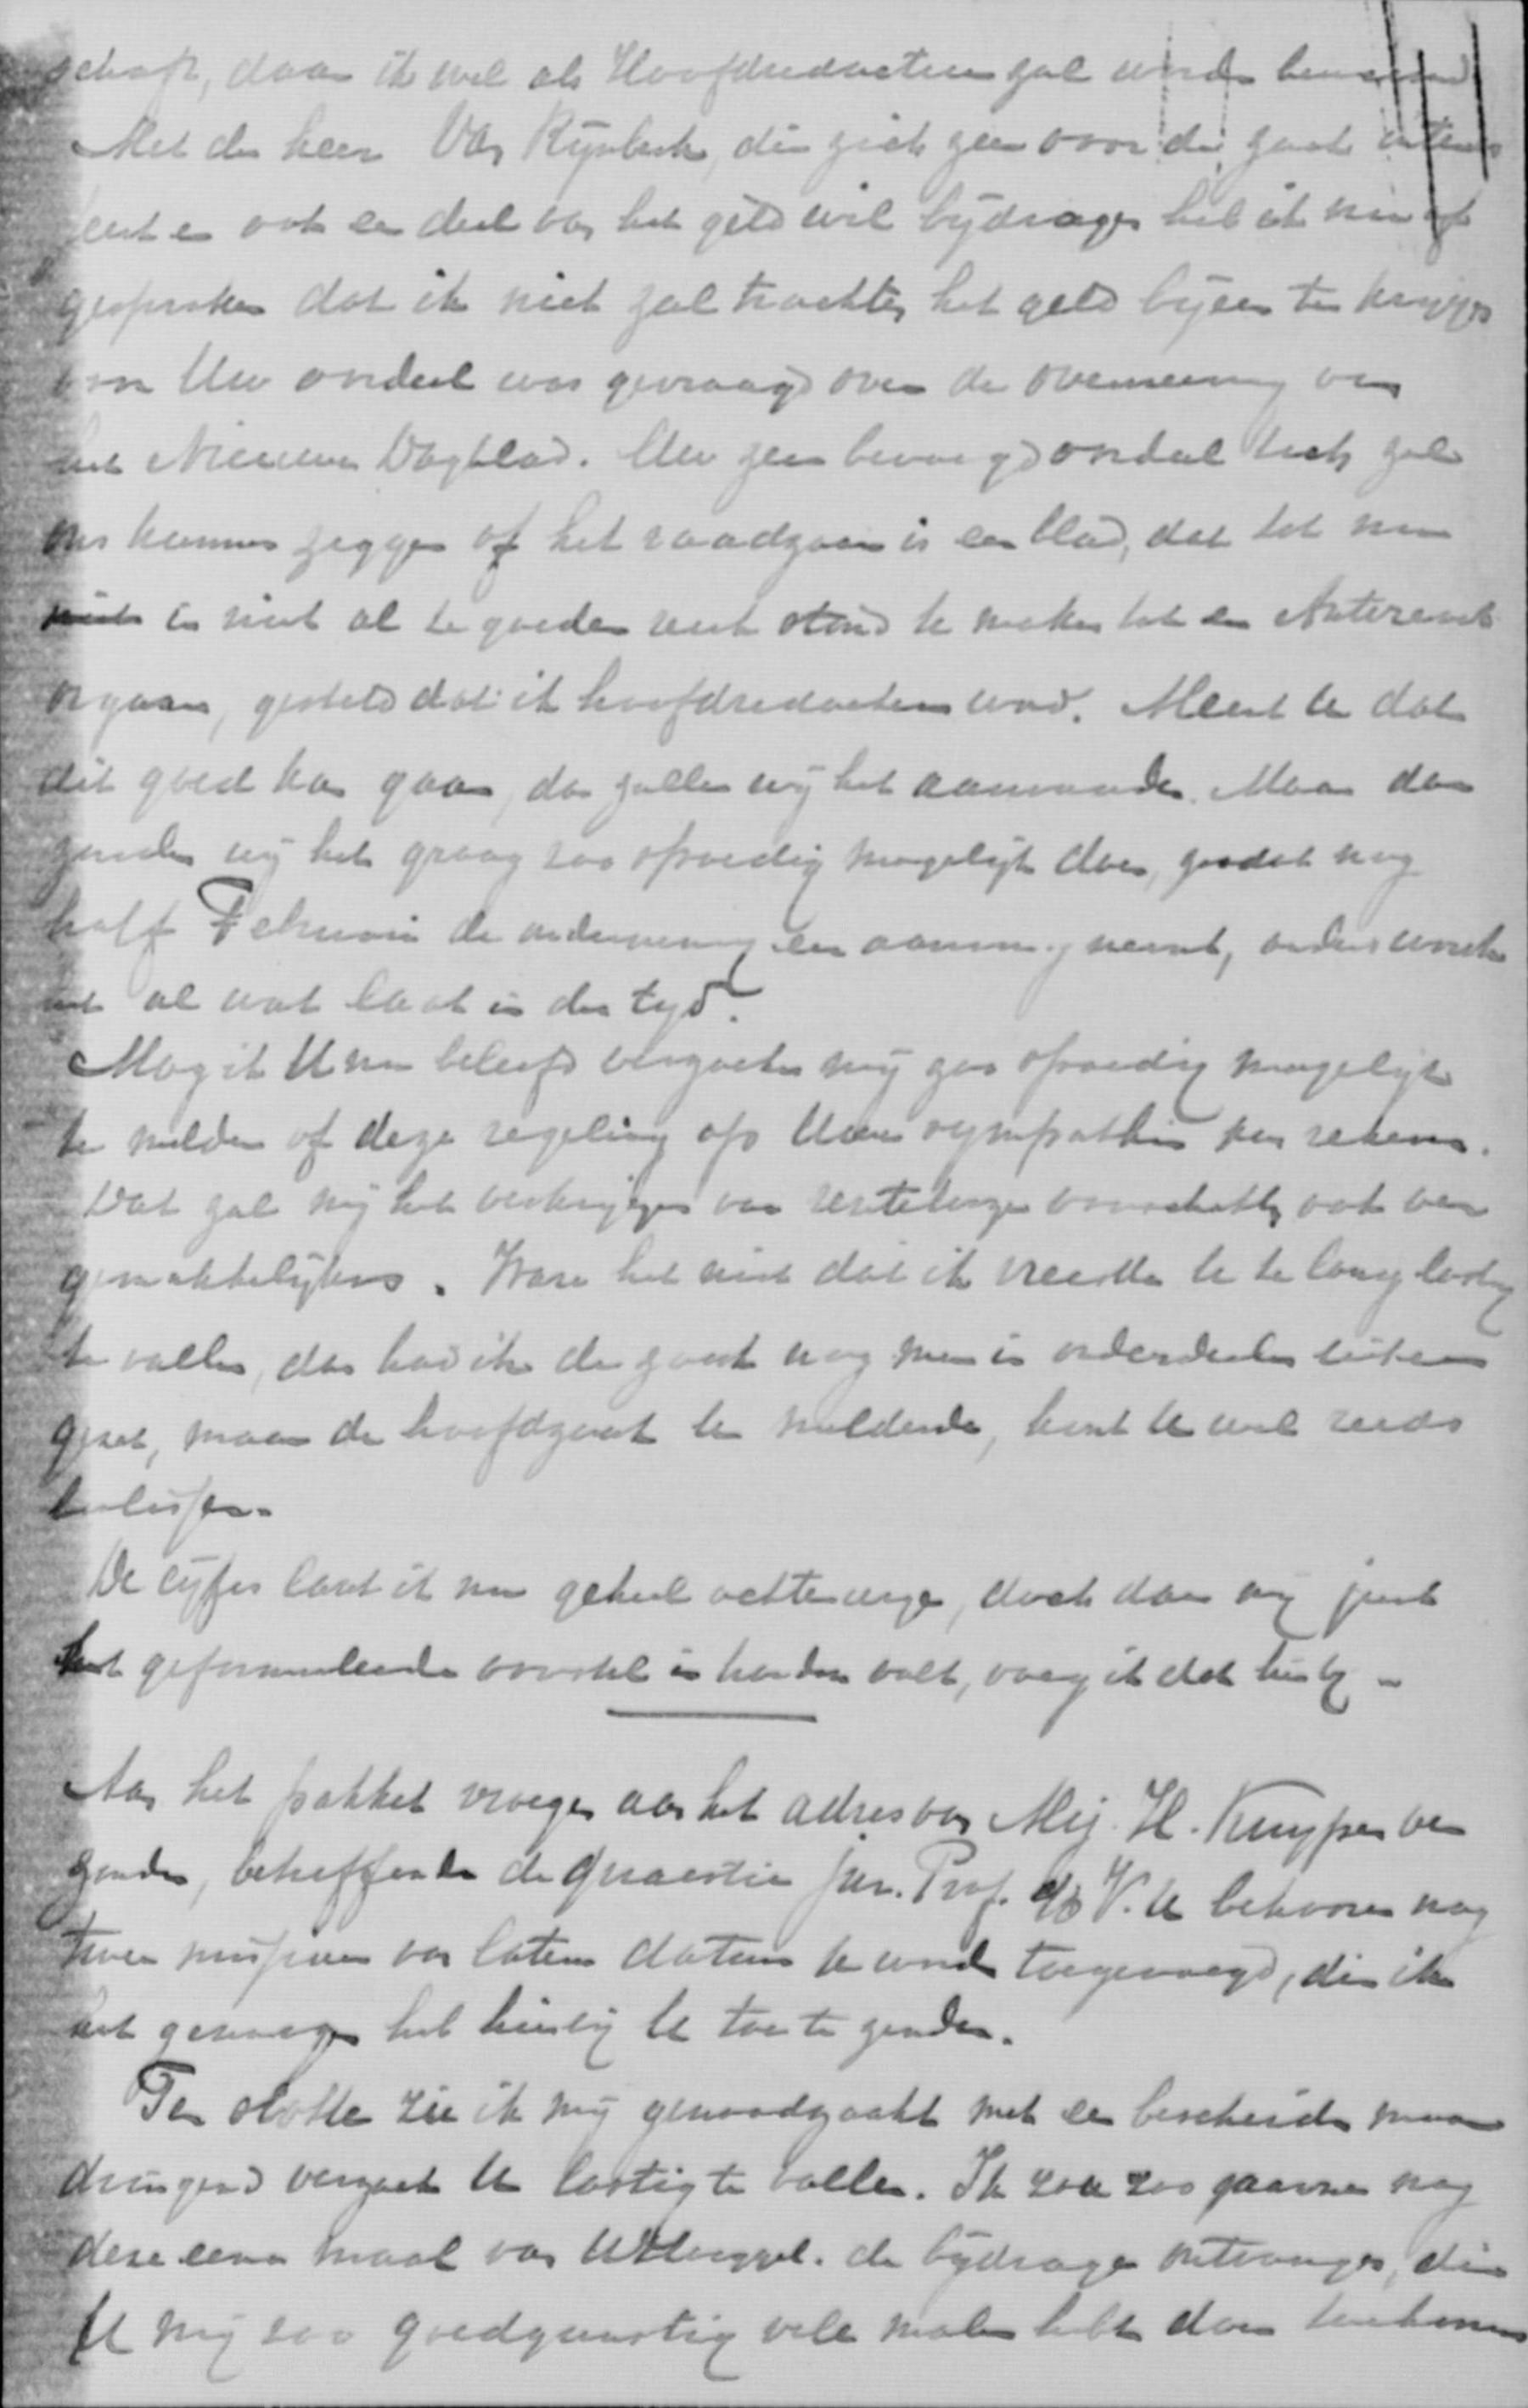 schaft, daar ik wel als Hoofdredacteur zal worden benoemd
Met den heer Van Rijnberk, die zich zeer voor de zaak interes
seert en ook een deel van het geld wil bijdragen heb ik nu af
gesproken dat ik niet zal trachten het geld bijeen te krijgen
voor Uw oordeel was gevraagd over de overneming van
het Nieuwe Dagblad. Uw zeer bevoegd oordeel toch zal
ons kunnen zeggen of het raadzaam is een blad, dat tot nu
in niet al te goeden reuk stond te maken tot een Antirevol.
orgaan, gesteld dat ik hoofdredacteur word. Meent U dat
dit goed kan gaan, dan zullen wij het aanvaarden. Maar dan
zouden wij het graag zoo spoedig mogelijk doen, zoodat nog
half Februari de onderneming een aanvang neemt, anders wordt
het al wat laat in den tijd.
Mag ik U nu beleefd verzoeken mij zoo spoedig mogelijk
te melden of deze regeling op Uwe sympathie kan rekenen.
Dat zal mij het verkrijgen van rentelooze voorschotten ook ver
gemakkelijken. Ware het niet dat ik vreesde U te lang lastig
te vallen, dan had ik de zaak nog meer in onderdeelen uiteen
gezet, maar de hoofdzaak U meldende, kunt U wel reeds
beslissen.
De cijfers laat ik nu geheel achterwege, doch daar mij juist
het geformuleerde voorstel in handen valt, voeg ik dat hierbij -
Aan het pakket vroeger aan het adres van Mej. H. Kuyper ver
zonden, betreffende de quaestie jur. Prof. d. V. U behooren nog
twee missiven van lateren datum te worden toegevoegd, die ik
het genoegen heb hierbij U toe te zenden.
Ten slotte zie ik mij genoodzaakt met een bescheiden maar
dringend verzoek U lastig te vallen. Ik zou zoo gaarne nog
deze eene maal van UHoogGel. de bijdrage ontvangen, die
U mij zoo goedgunstig vele malen hebt doen toekomen